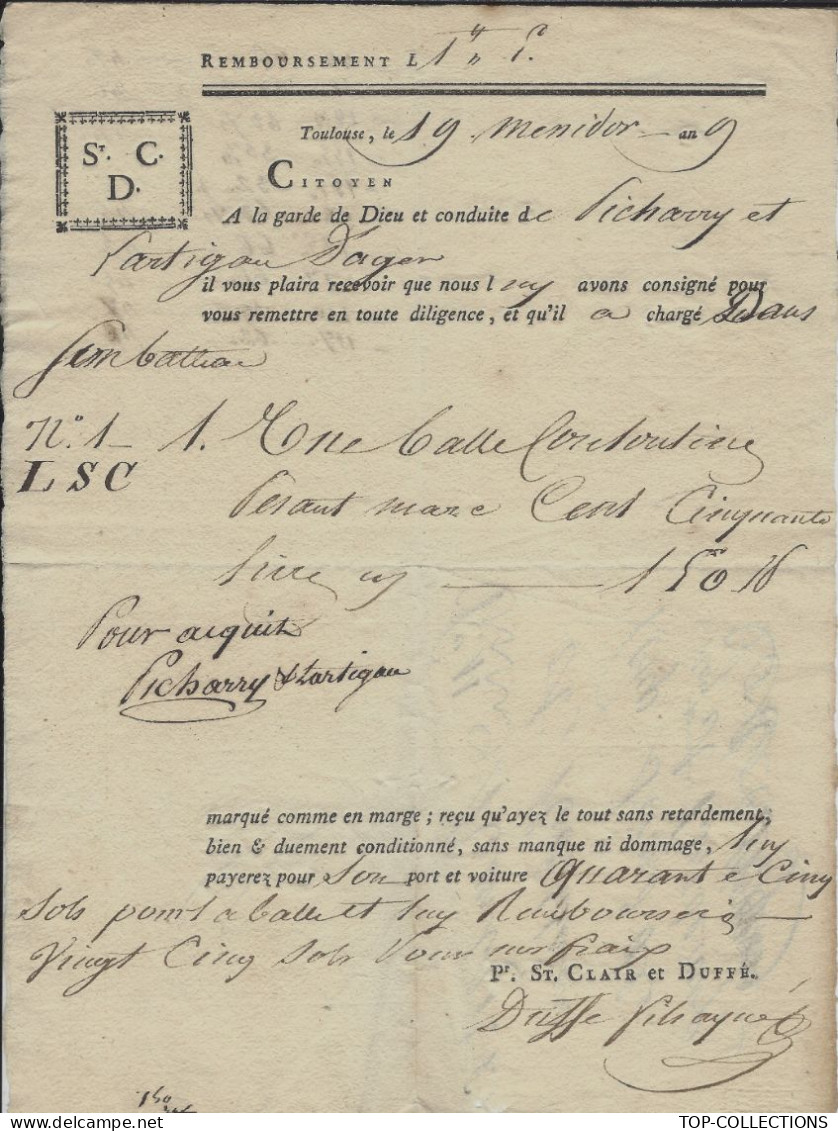 REMBOURSEMENT L 1 " 5
Toulouse, le 19 Messidor an 9
ST. C.
D.
CITOYEN
A la garde de Dieu et conduite de Picharry et
Lartigau D'agen
il vous plaira recevoir que nous luy avons consigné pour
vous remettre en toute diligence, et qu'il a chargé Dans
N.o 1 1. Une Balle
LSC
Pesant marc Cent Cinquante
150 ℔
Pour acquit
Picharry & Lartigau
marqué comme en marge ; reçu qu'ayez le tout sans retardement,
bien & duement conditionné, sans manque ni dommage, luy
payerez pour Son port et voiture Quarante Cinq
Sols pour la balle et luy
Vingt Cinq Sols pour nos fraix
Pr. ST. CLAIR et DUFFÉ.
Duffe
150
TOP-COLLECTIONS.COM